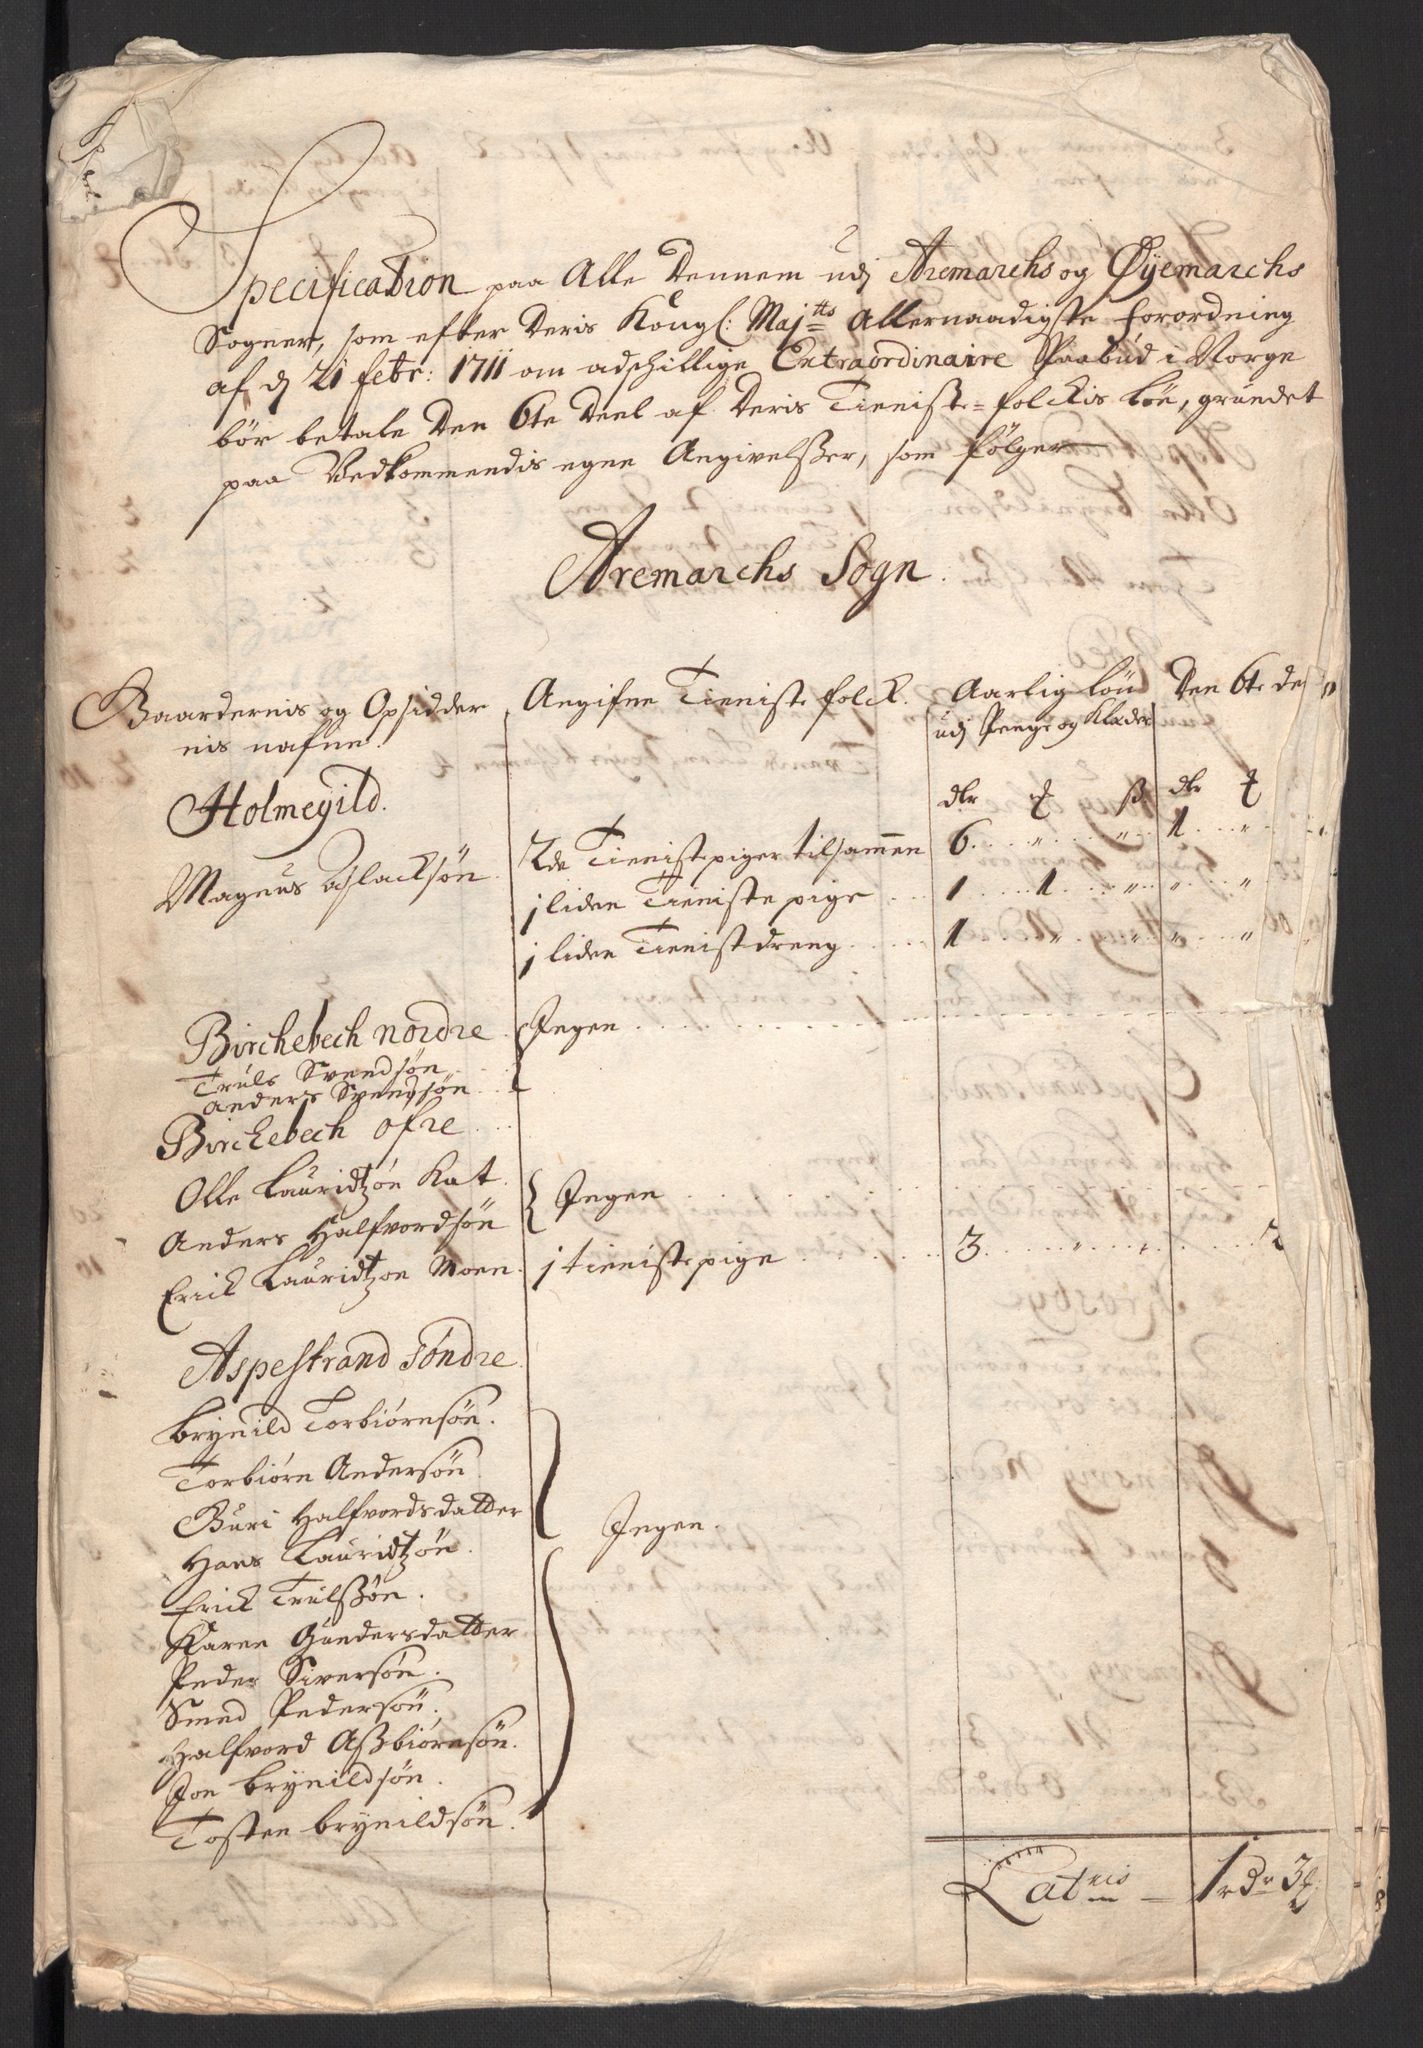 Specification paa Alle Dennem udj Aremarchs og Øÿemarchs
Sogner, som efter Deris Kongl: Maj:tts Allernaadigste forordning
af d 21 febr: 1711 om adschillige Extraordinaire Paabud i Norge
bør betale Den 6te Deel af Deris Tieniste=folckis Løn, grundet
paa Vedkommendis egne Angivelßer, som følger
Aremarchs Sogn.
Gaardernis og Opsidder
nis nafne.
Angifne Tieniste folck.
Aarlig Løn
udj Penge og Klæder
Den 6te de
dlr ß dlr
Holmegild.
Magnus Aslacksøn. 2de Tienistepiger tilsammen 6 " " 1 "
1 liden Tieniste pige 1 1 " " "
1 liden Tienistdreng 1 " " " "
Birchebech nordre Ingen
Truls Svendsøn
Anders Svendsøn
Birchebech ofre
Olle Lauridtzøn Kat.
Anders Halfvordsøn Ingen
Erick Lauridtzøn Moen. 1 tieniste pige 3 " " 2
Aspestrand Søndre
Brynild Torbiørnsøn.
Torbiørn Andersøn
Guri Halfvordsdatter
Hans Lauridtzøn. Ingen.
Erick Trulßøn.
Karen Gundersdatter
Peder Siversøn.
Svend Pedersøn.
Halfvord Aßbiørnsøn.
Jon Brynildsøn.
Tosten Brynildsøn.
Lateris 1 rdr 3